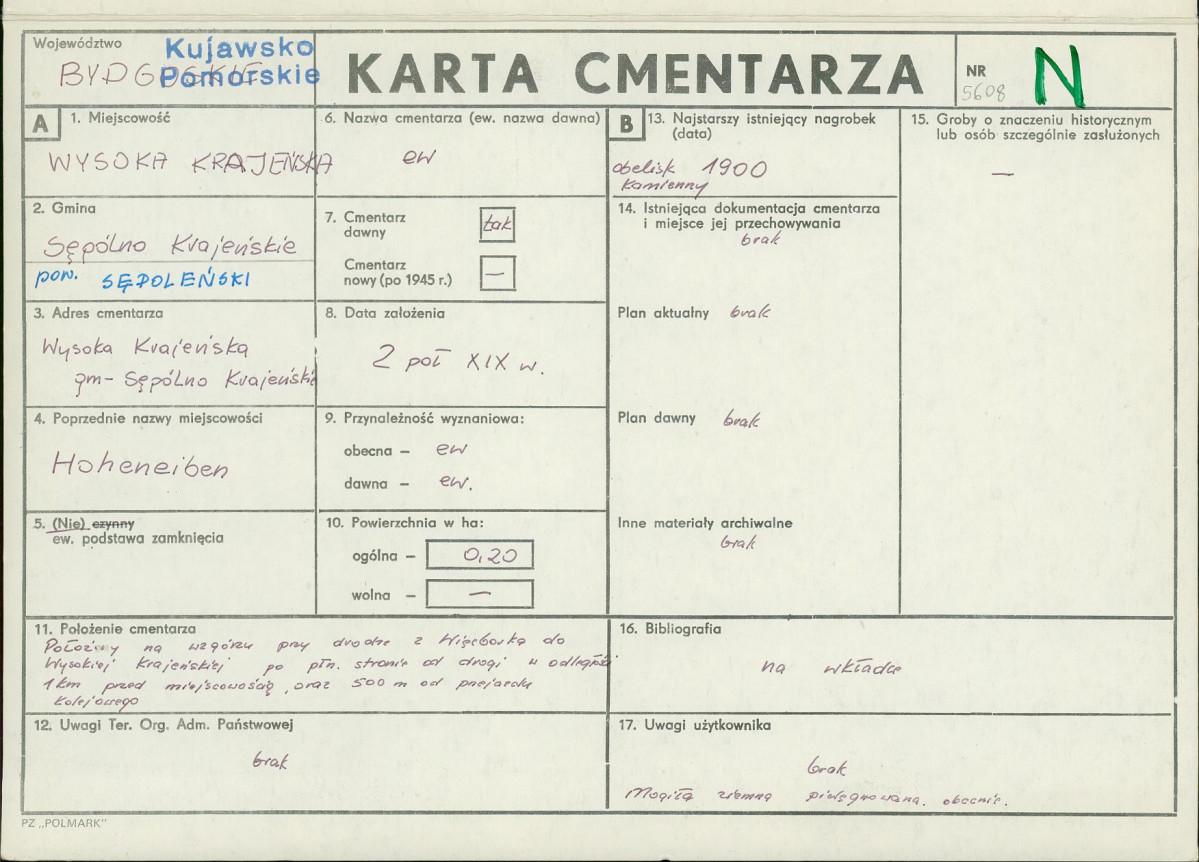 Województwo
BYDGOSKIE
Kujawsko
Pomorskie
KARTA CMENTARZA
NR
5608
N
A
1. Miejscowość
WYSOKA KRAJEŃSKA
2. Gmina
Sępólno Krajeńskie
pow. SĘPOLEŃSKI
3. Adres cmentarza
Wysoka Krajeńska
gm- Sępólno Krajeńskie
4. Poprzednie nazwy miejscowości
Hoheneiben
5. (Nie) czynny
ew. podstawa zamknięcia
6. Nazwa cmentarza (ew. nazwa dawna)
ew
7. Cmentarz
dawny
tak
Cmentarz
nowy (po 1945 r.)
—
8. Data założenia
2 poł XIX w.
9. Przynależność wyznaniowa:
obecna – ew
dawna – ew.
10. Powierzchnia w ha:
ogólna – 0,20
wolna – —
11. Położenie cmentarza
Położony na wzgórzu przy drodze z Więcborka do
Wysokiej Krajeńskiej po płn. stronie od drogi w odległości
1km przed miejscowością, oraz 500 m od przejazdu
kolejowego
12. Uwagi Ter. Org. Adm. Państwowej
brak
B
13. Najstarszy istniejący nagrobek
(data)
obelisk 1900
kamienny
14. Istniejąca dokumentacja cmentarza
i miejsce jej przechowywania
brak
Plan aktualny brak
Plan dawny brak
Inne materiały archiwalne
brak
15. Groby o znaczeniu historycznym
lub osób szczególnie zasłużonych
—
16. Bibliografia
na wkładce
17. Uwagi użytkownika
brak
Mogiła ziemna pielęgnowana. obecnie.
PZ „POLMARK"